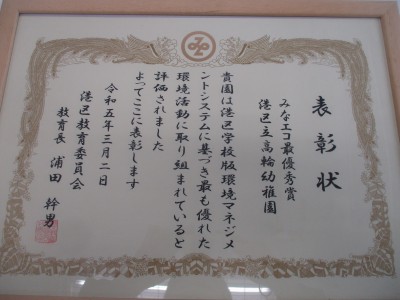 表彰状
みなエコ最優秀賞
港区立高輪幼稚園
貴園は港区学校版環境マネジメ
ントシステムに基づき最も優れた
環境活動に取り組まれていると
評価されました
よってここに表彰します
令和五年三月二日
港区教育委員会
教育長 浦田幹男